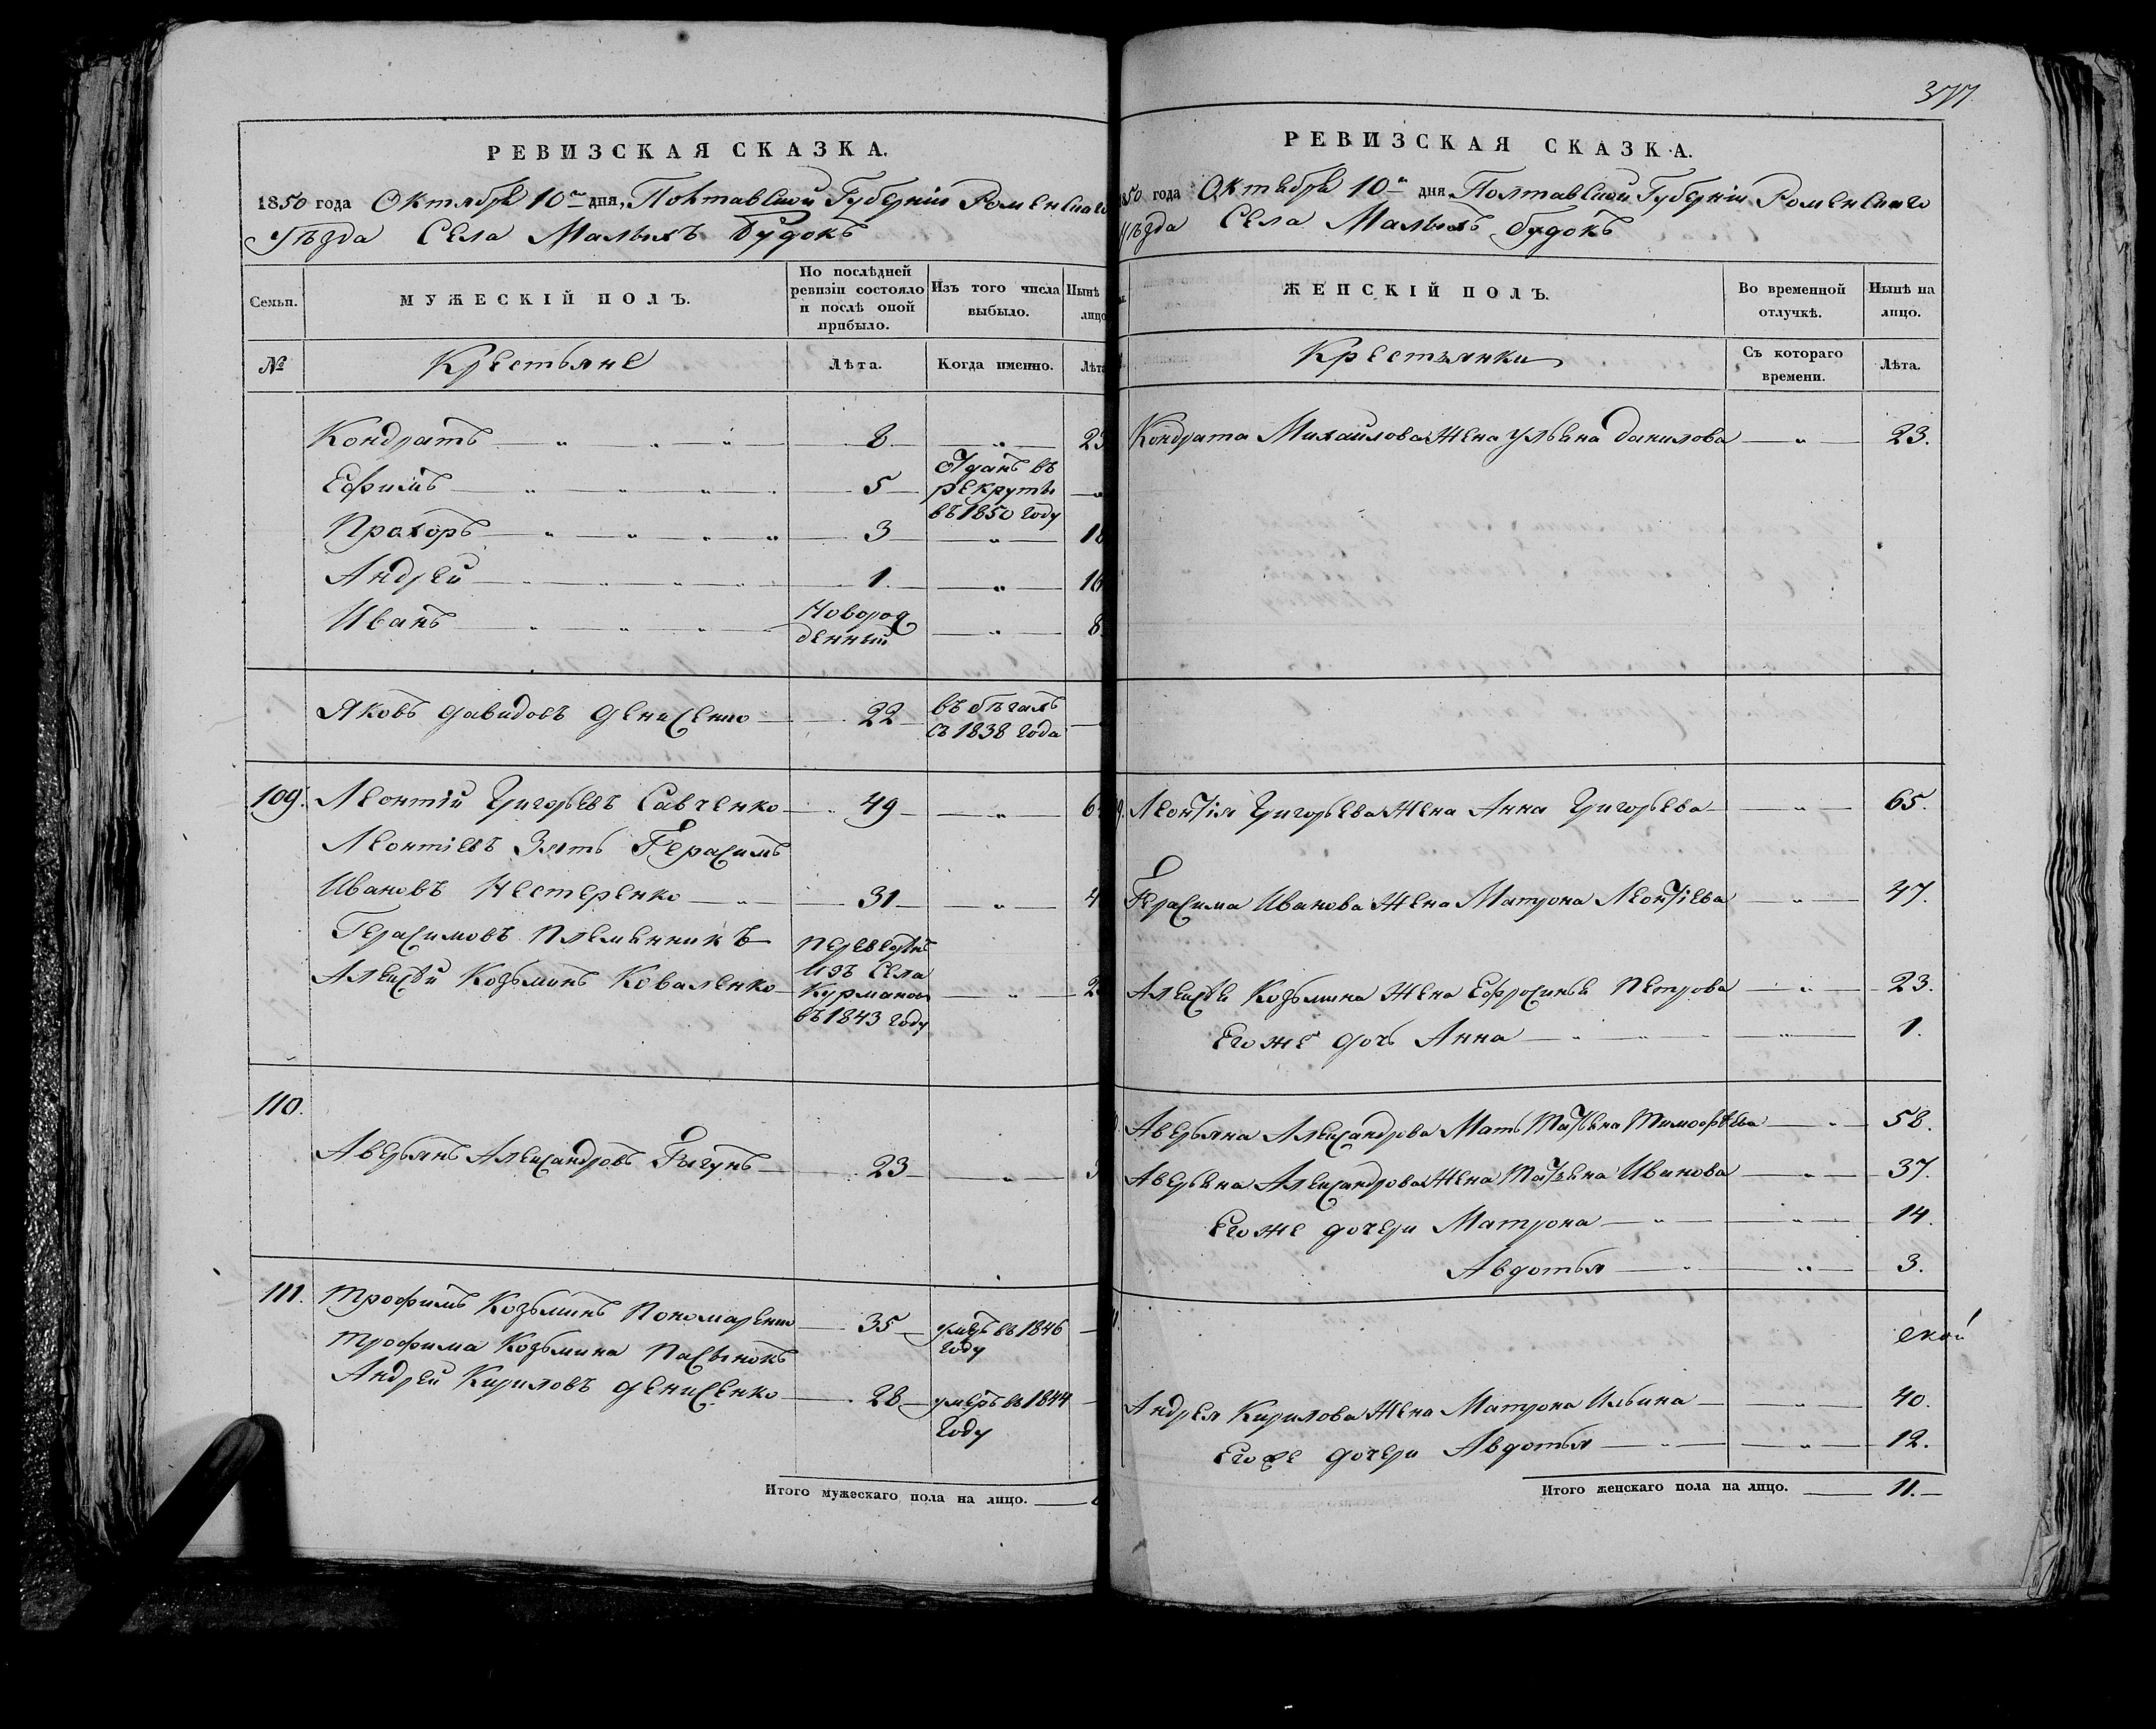 РЕВИЗСКАЯ СКАЗКА.
1850 года Октября 10го дня, Полтавской Губерніи Роменскаго
Уѣзда Села Малыхъ Будокъ
Семьи. МУЖЕСКІЙ ПОЛЪ. По послѣдней ревизіи состояло и послѣ оной прибыло. Изъ того числа выбыло. Нынѣ лицо
№ Крестьяне Лѣта. Когда именно. Лѣта
Кондратъ — „ „ „ 8 — „ — 23
Ефимъ — „ „ „ 5 — Отданъ въ рекруты въ 1850 году — „
Прохоръ — „ „ „ „ 3 — „ — 18
Андрей — „ „ „ „ 1. — „ — 16
Иванъ — „ „ „ Новорожденный — „ — 8.
Яковъ Давидовъ Денисенко — 22 — въ бѣгахъ съ 1838 года —
109. Леонтій Григорьевъ Савченко — 49 — „ — 6
Леонтіевъ Зять Герасимъ
Ивановъ Нестеренко — „ — 31 — „ — 4
Герасимовъ Племенникъ
Алексѣй Козьминъ Коваленко — Переведенъ изъ Села Курманов въ 1843 году — „ — 2
110.
Аверьянъ Александровъ Гычунъ — 23 — „ — 3
111. Трофимъ Козьминъ Пономаренко — 35 — умеръ въ 1846 году —
Трофима Козьмина Пасынокъ
Андрей Кириловъ Денисенко — 28 — умеръ въ 1844 году —
Итого мужескаго пола на лицо. —
377.
РЕВИЗСКАЯ СКАЗКА.
850 года Октября 10го дня Полтавской Губерніи Роменскаго
Уѣзда Села Малыхъ Будокъ
ЖЕНСКІЙ ПОЛЪ. Во временной отлучкѣ. Нынѣ на лицо.
Крестьянки Съ котораго времени. Лѣта.
Кондрата Михайлова Жена Ульяна Данилова — „ — 23.
9. Леонтія Григорьева Жена Анна Григорьева — „ — 65.
Герасима Иванова Жена Матрона Леонтіева — „ — 47.
Алексѣя Козьмина Жена Ефросинья Петрова — „ — 23.
Его же дочь Анна — „ — „ — „ — 1.
Аверьяна Александрова Мать Татьяна Тимофѣева — „ — 58.
Аверьяна Александрова Жена Татьяна Иванова — „ — 37.
Его же дочери Матрона — „ — „ — 14.
Авдотья — „ — „ — 3.
ской
Андрея Кирилова Жена Матрона Ильина — „ — 40.
Его же дочери Авдотья — „ — „ — 12.
Итого женскаго пола на лицо. — 11.—